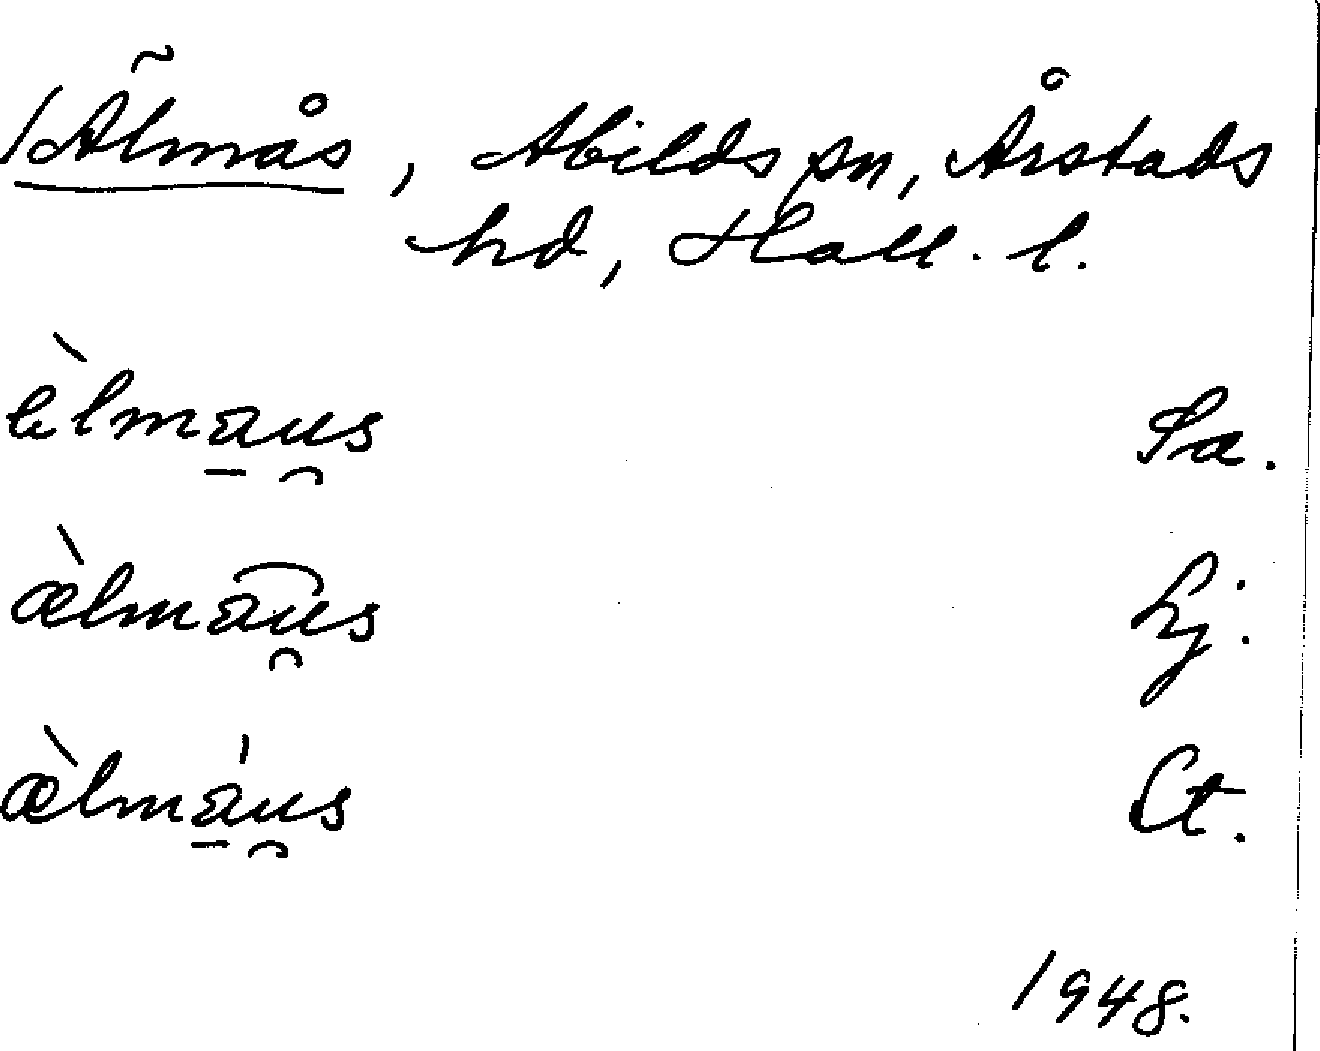 /Älmås, Abilds sn, Årstads
hd, Hall. l.
èlma̱u̯s Sa.
æ̀lma͡u̯s Lj.
æ̀lmá̱u̯s Ct.
1948.